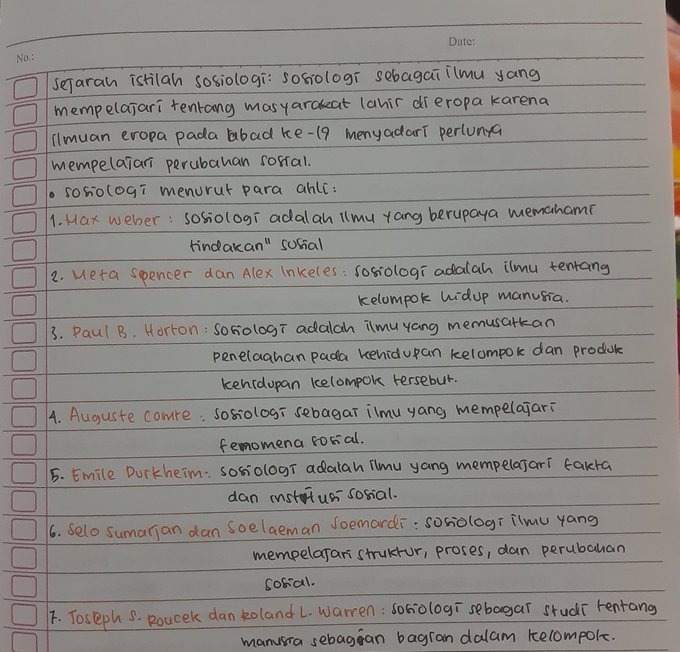 No.:
Date:
Sejarah istilah sosiologi: sosiologi sebagai ilmu yang
mempelajari tentang masyarakat lahir di eropa karena
ilmuan eropa pada abad ke-19 menyadari perlunya
mempelajari perubahan sosial.
• sosiologi menurut para ahli:
1. Max weber : sosiologi adalah ilmu yang berupaya memahami
tindakan" sosial
2. Meta Spencer dan Alex Inkeles : sosiologi adalah ilmu tentang
kelompok hidup manusia.
3. Paul B. Horton : sosiologi adalah ilmu yang memusatkan
penelaahan pada kehidupan kelompok dan produk
kehidupan kelompok tersebut.
4. Auguste comte : sosiologi sebagai ilmu yang mempelajari
femomena sosial.
5. Emile Durkheim : sosiologi adalah ilmu yang mempelajari fakta
dan institusi sosial.
6. Selo Sumarjan dan Soelaeman Soemardi : sosiologi ilmu yang
mempelajari struktur, proses, dan perubahan
sosial.
7. Joseph S. Roucek dan Roland L. Warren : sosiologi sebagai studi tentang
manusia sebagian bagian dalam kelompok.